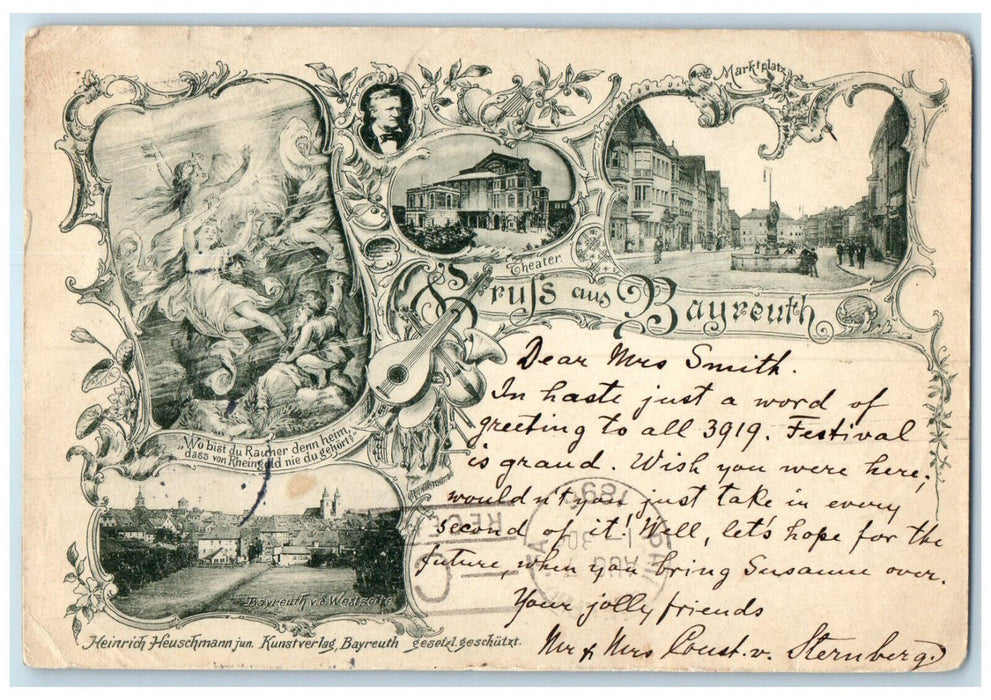 Marktplatz
Theater.
Gruß aus Bayreuth
„Wo bist du Räuher denn heim,
dass von Rheingold nie du gehört?“
Dear Mrs Smith.
In haste just a word of
greeting to all 3919. Festival
is grand. Wish you were here;
wouldn't you just take in every
second of it! Well, let's hope for the
future, when you bring Susanne over.
Your jolly friends
Mr & Mrs Const. v. Sternberg.
Bayreuth v. d. Westseite
Heinrich Heuschmann jun. Kunstverlag, Bayreuth gesetzl. geschützt.
189
AUG
30
REC